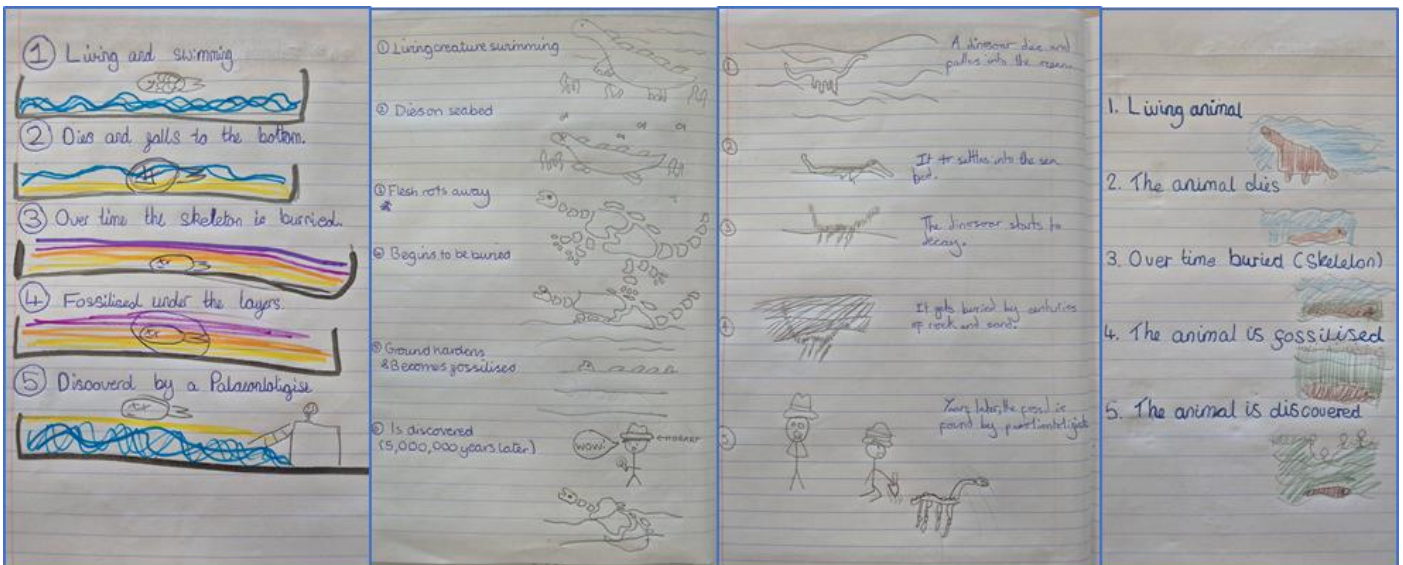 1 Living and swimming.
2 Dies and falls to the bottom.
3 Over time the skeleton is burried.
4 Fossilised under the layers.
5 Discoverd by a Palaeontologise
1 Living creature swimming
2 Dies on seabed
3 Flesh rots away
Begins to be buried
5 Ground hardens
& Becomes fossilised
Is discovered
(5,000,000 years later)
WOW!
1
A dinosaur dies and
falls into the ocean.
2
It settles into the sea
bed.
3
The dinosaur starts to
decay.
4
It gets buried by centuries
of rock and sand.
5
Years later, the fossil is
found by
1. Living animal
2. The animal dies
3. Over time buried (Skeleton)
4. The animal is fossilised
5. The animal is discovered